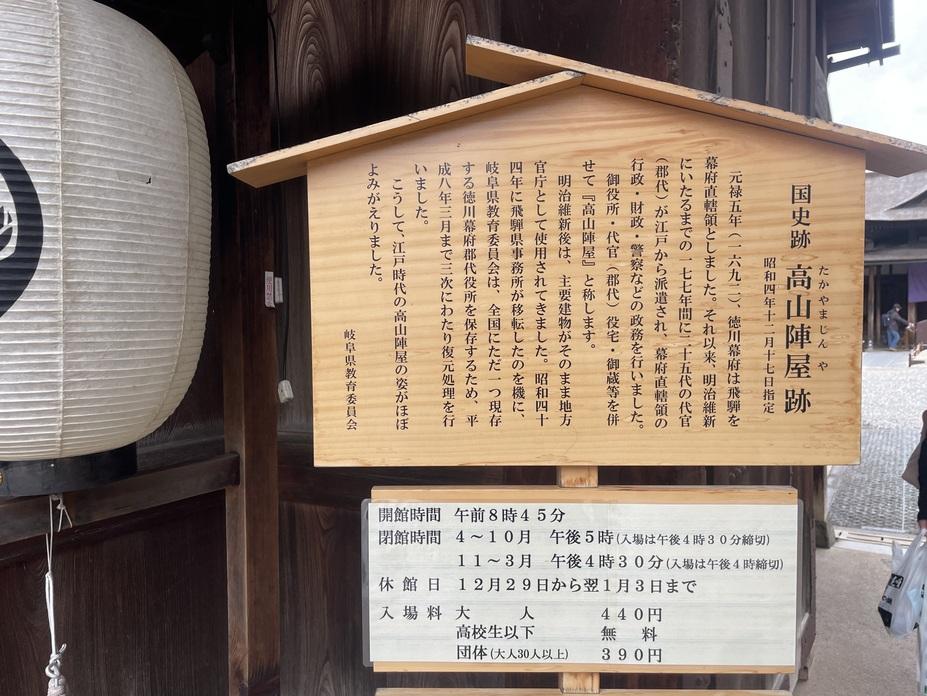 国史跡 高山陣屋跡
たかやまじんや
昭和四年十二月十七日指定
元禄五年（一六九二）、徳川幕府は飛騨を
幕府直轄領としました。それ以来、明治維新
にいたるまでの一七七年間に二十五代の代官
（郡代）が江戸から派遣され、幕府直轄領の
行政・財政・警察などの政務を行いました。
御役所・代官（郡代）役宅・御蔵等を併
せて『高山陣屋』と称します。
明治維新後は、主要建物がそのまま地方
官庁として使用されてきました。昭和四十
四年に飛騨県事務所が移転したのを機に、
岐阜県教育委員会は、全国にただ一つ現存
する徳川幕府郡代役所を保存するため、平
成八年三月まで三次にわたり復元処理を行
いました。
こうして、江戸時代の高山陣屋の姿がほぼ
よみがえりました。
岐阜県教育委員会
開館時間 午前８時４５分
閉館時間 ４～１０月 午後５時(入場は午後４時３０分締切)
１１～３月 午後４時３０分(入場は午後４時締切)
休館日 １２月２９日から翌１月３日まで
入場料 大人 ４４０円
高校生以下 無料
団体(大人30人以上) ３９０円